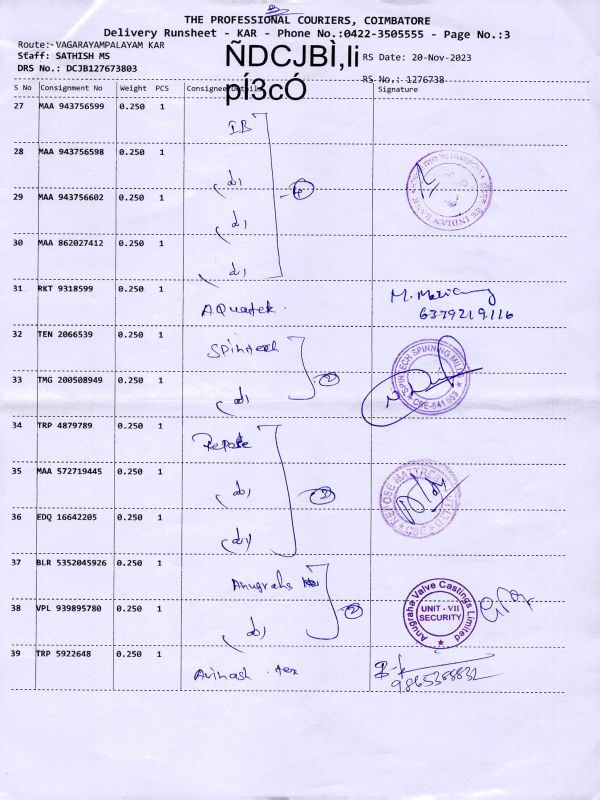 THE PROFESSIONAL COURIERS, COIMBATORE
Delivery Runsheet - KAR - Phone No.:0422-3505555 - Page No.:3
Route: VAGARAYAMPALAYAM KAR
Staff: SATHISH MS
DRS No.: DCJB127673803
ÑDCJBÌ,li
pÍ3cÓ
RS Date: 20-Nov-2023
RS No.: 1276738
S No Consignment No Weight PCS Consignee Details Signature
27 MAA 943756599 0.250 1 IB
28 MAA 943756598 0.250 1 (do)
INDIAN BANK
29 MAA 943756602 0.250 1 (do)
30 MAA 862027412 0.250 1 (do)
31 RKT 9318599 0.250 1 Aquatek.
6379219116
32 TEN 2066539 0.250 1 Spintech
SPINTECH SPINNING MILL
CBE-641 659
33 TMG 200508949 0.250 1 (do)
34 TRP 4879789 0.250 1 Repose
35 MAA 572719445 0.250 1 (do)
REPOSE MATTRESS
CBE
36 EDQ 16642205 0.250 1 (do)
37 BLR 5352045926 0.250 1 Anugraha
38 VPL 939895780 0.250 1 (do)
Anugraha Valve Castings Limited
UNIT - VII
SECURITY
39 TRP 5922648 0.250 1 Avinash tex
9865368832